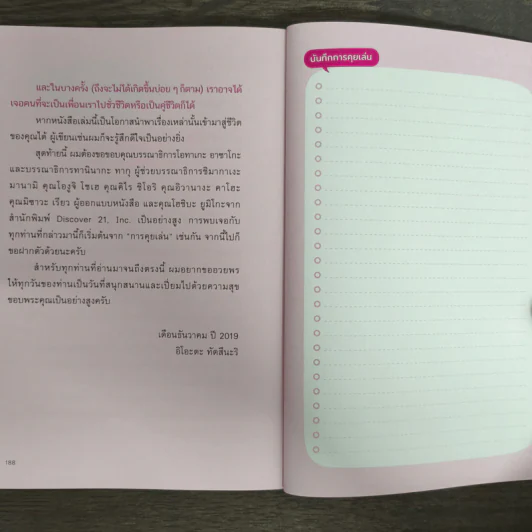 และในบางครั้ง (ถึงจะไม่ได้เกิดขึ้นบ่อย ๆ ก็ตาม) เราอาจได้
เจอคนที่จะเป็นเพื่อนเราไปชั่วชีวิตหรือเป็นคู่ชีวิตก็ได้
หากหนังสือเล่มนี้เป็นโอกาสนำพาเรื่องเหล่านั้นเข้ามาสู่ชีวิต
ของคุณได้ ผู้เขียนเช่นผมก็จะรู้สึกดีใจเป็นอย่างยิ่ง
สุดท้ายนี้ ผมต้องขอขอบคุณบรรณาธิการโอทาเกะ อาซาโกะ
และบรรณาธิการทานินากะ ทากุ ผู้ช่วยบรรณาธิการชิมากาเงะ
มานามิ คุณโองูจิ โชเฮ คุณคิไร ชิโอริ คุณอิวานางะ คาโฮะ
คุณมิซาวะ เรียว ผู้ออกแบบหนังสือ และคุณโฮชิบะ ยูมิโกะจาก
สำนักพิมพ์ Discover 21, Inc. เป็นอย่างสูง การพบเจอกับ
ทุกท่านที่กล่าวมานี้ก็เริ่มต้นจาก "การคุยเล่น" เช่นกัน จากนี้ไปก็
ขอฝากตัวด้วยนะครับ
สำหรับทุกท่านที่อ่านมาจนถึงตรงนี้ ผมอยากขออวยพร
ให้ทุกวันของท่านเป็นวันที่สนุกสนานและเปี่ยมไปด้วยความสุข
ขอบพระคุณเป็นอย่างสูงครับ
เดือนธันวาคม ปี 2019
อิโอะตะ ทัตสึนะริ
188
บันทึกการคุยเล่น